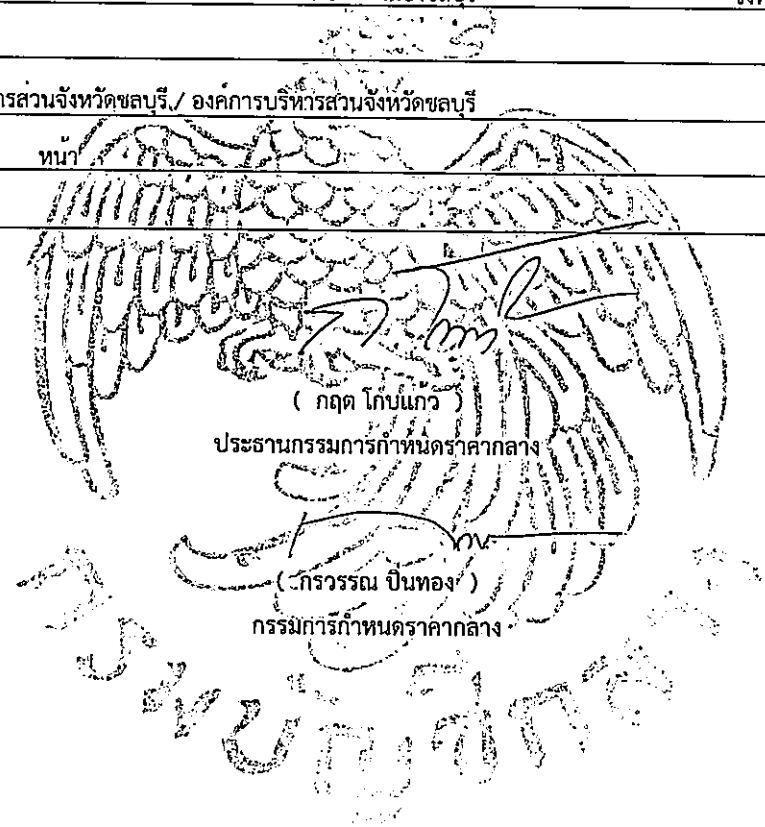 ารส่วนจังหวัดชลบุรี / องค์การบริหารส่วนจังหวัดชลบุรี
หน้า
( กฤต โกับแก้ว )
ประธานกรรมการกำหนดราคากลาง
( กรวรรณ ปิ่นทอง )
กรรมการกำหนดราคากลาง
กรมบัญชีกลาง